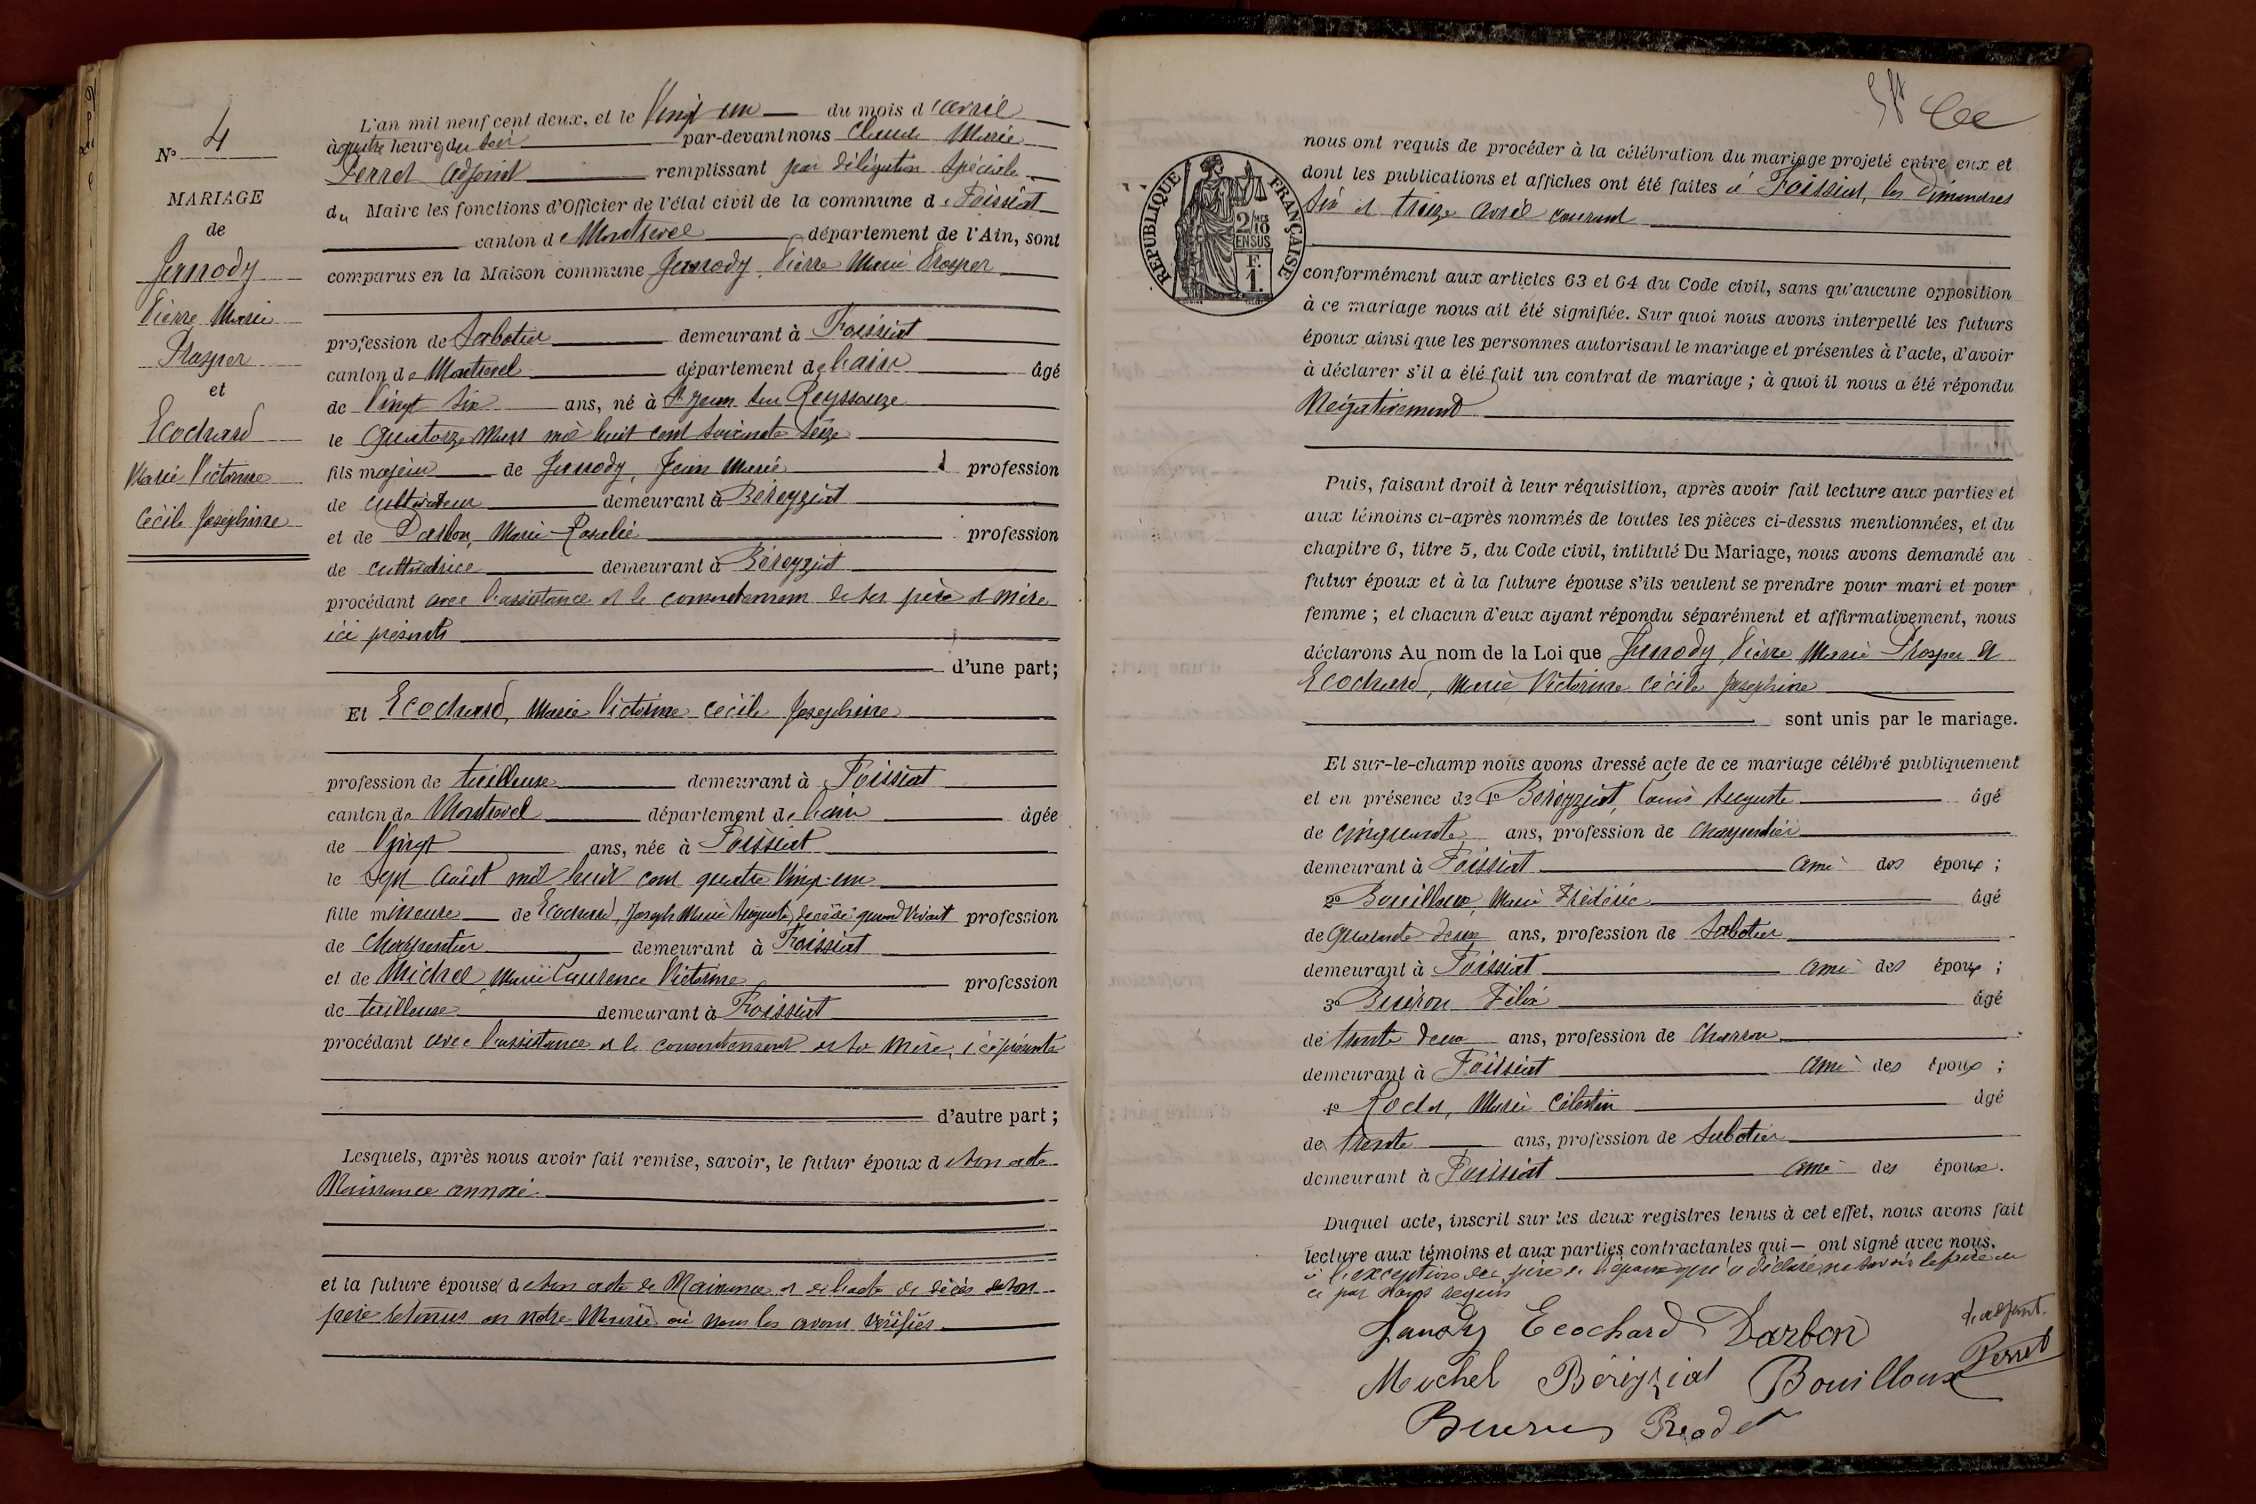 N° 4
MARIAGE
de
Janody
Pierre Marie
Prosper
et
Ecochard
Marie Victorine
Cécile Joséphine
L'an mil neuf cent deux, et le Vingt un du mois d'avril
à quatre heures du soir par-devant nous Claude Marie
Perret adjoint remplissant par délégation spéciale
du Maire les fonctions d'Officier de l'état civil de la commune de Foissiat
canton de Montrevel département de l'Ain, sont
comparus en la Maison commune Janody Pierre Marie Prosper
profession de Sabotier demeurant à Foissiat
canton de Montrevel département de l'ain âgé
de Vingt six ans, né à St Jean sur Reyssouze
le Quatorze Mars mil huit cent soixante seize
fils majeur de Janody, Jean Marie profession
de cultivateur demeurant à Béreyziat
et de Darbon, Marie-Rosalie profession
de cultivatrice demeurant à Béreyziat
procédant avec l'assistance et le consentement de ses père et mère
ici présents
d'une part;
Et Ecochard, Marie Victorine Cécile Joséphine
profession de tailleuse demeurant à Foissiat
canton de Montrevel département de l'ain âgée
de Vingt ans, née à Foissiat
le Sept Août mil huit cent quatre Vingt-un
fille mineure de Ecochard, Joseph Marie Auguste, décédé quand vivait profession
de Charpentier demeurant à Foissiat
et de Michel, Marie Laurence Victorine profession
de tailleuse demeurant à Foissiat
procédant avec l'assistance et le consentement de sa mère, ici présente
d'autre part;
Lesquels, après nous avoir fait remise, savoir, le futur époux de son acte
Naissance annexé
et la future épouse de son acte de Naissance et de l'acte de décès de son
père retenus en notre Mairie où nous les avons vérifiés
RÉPUBLIQUE FRANÇAISE
2/10
EN SUS
F.
1.
nous ont requis de procéder à la célébration du mariage projeté entre eux et
dont les publications et affiches ont été faites à Foissiat, les dimanches
six et treize avril courant
conformément aux articles 63 et 64 du Code civil, sans qu'aucune opposition
à ce mariage nous ait été signifiée. Sur quoi nous avons interpellé les futurs
époux ainsi que les personnes autorisant le mariage et présentes à l'acte, d'avoir
à déclarer s'il a été fait un contrat de mariage; à quoi il nous a été répondu
Négativement
Puis, faisant droit à leur réquisition, après avoir fait lecture aux parties et
aux témoins ci-après nommés de toutes les pièces ci-dessus mentionnées, et du
chapitre 6, titre 5, du Code civil, intitulé Du Mariage, nous avons demandé au
futur époux et à la future épouse s'ils veulent se prendre pour mari et pour
femme; et chacun d'eux ayant répondu séparément et affirmativement, nous
déclarons Au nom de la Loi que Janody Pierre Marie Prosper et
Ecochard, Marie Victorine Cécile Joséphine
sont unis par le mariage.
Et sur-le-champ nous avons dressé acte de ce mariage célébré publiquement
et en présence de 1° Béreyziat, Louis Auguste âgé
de cinquante ans, profession de charpentier
demeurant à Foissiat ami des époux;
2° Bouilloux, Marie Frédéric âgé
de Quarante deux ans, profession de Sabotier
demeurant à Foissiat ami des époux;
3° Buiron Félix âgé
de trente deux ans, profession de Charron
demeurant à Foissiat ami des époux;
4° Rodet, Marie Célestin âgé
de trente ans, profession de Sabotier
demeurant à Foissiat ami des époux.
Duquel acte, inscrit sur les deux registres tenus à cet effet, nous avons fait
lecture aux témoins et aux parties contractantes qui ont signé avec nous,
à l'exception du père de l'époux qui a déclaré ne savoir le faire de
ce par nous requis
Janody Ecochard Darbon L'adjoint.
Michel Béréyziat Bouilloux Perret
Buiron Rodet